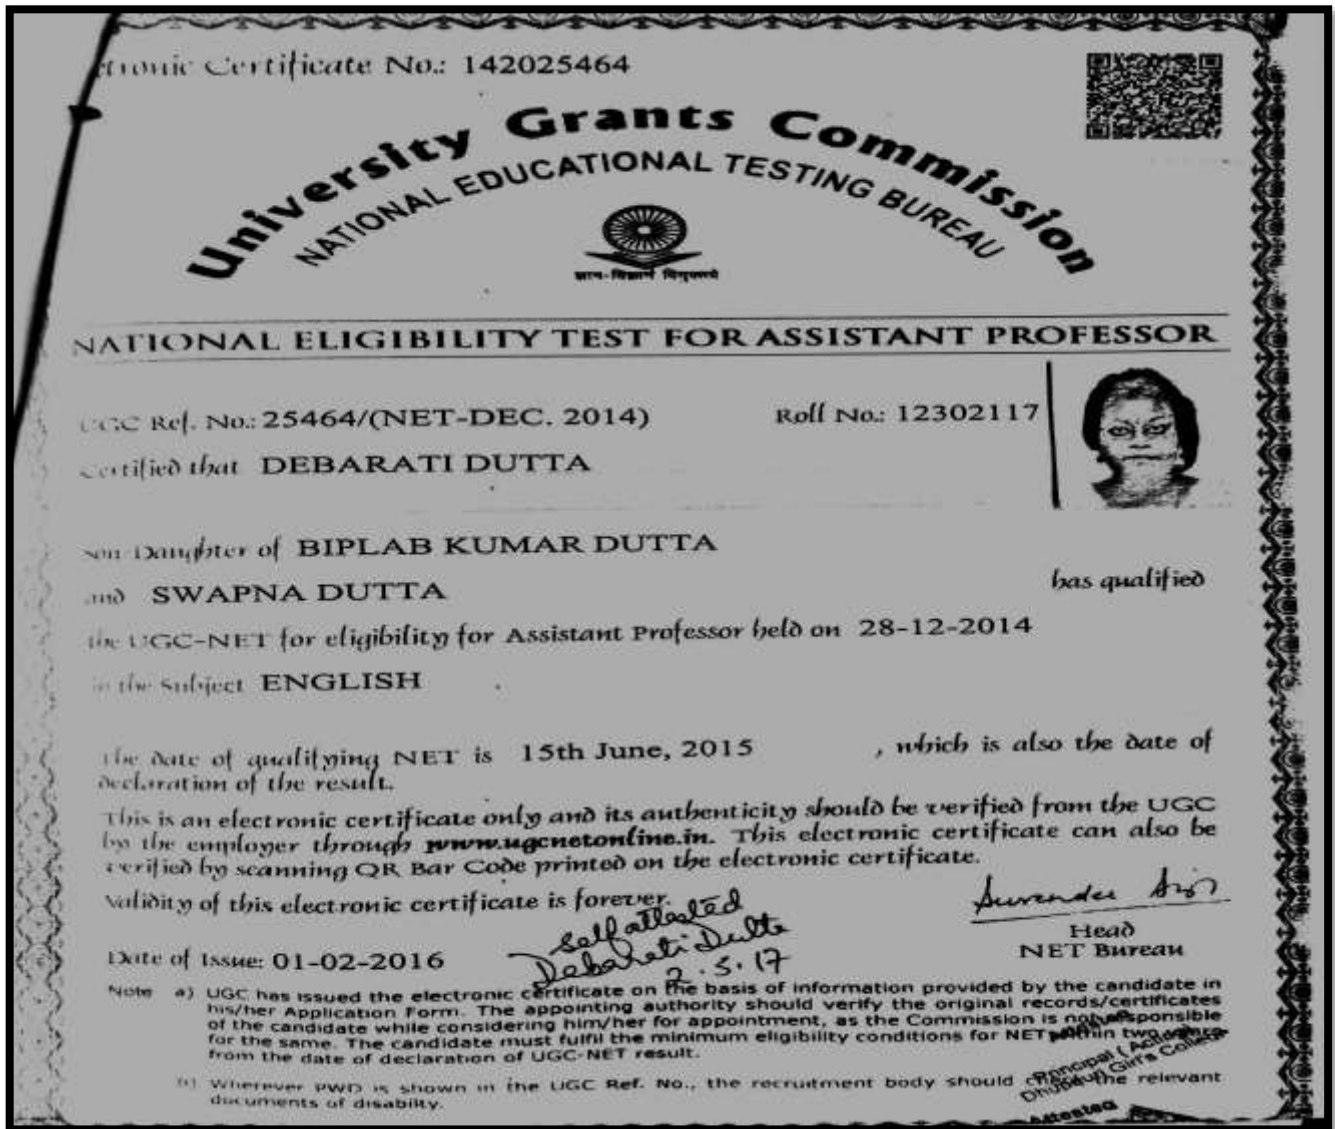 ctronic Certificate No.: 142025464
University Grants Commission
NATIONAL EDUCATIONAL TESTING BUREAU
ज्ञान-विज्ञानं विमुक्तये
NATIONAL ELIGIBILITY TEST FOR ASSISTANT PROFESSOR
UGC Ref. No.: 25464/(NET-DEC. 2014) Roll No.: 12302117
Certified that DEBARATI DUTTA
Son Daughter of BIPLAB KUMAR DUTTA
and SWAPNA DUTTA has qualified
the UGC-NET for eligibility for Assistant Professor held on 28-12-2014
in the Subject ENGLISH
The date of qualifying NET is 15th June, 2015 , which is also the date of
declaration of the result.
This is an electronic certificate only and its authenticity should be verified from the UGC
by the employer through www.ugcnetonline.in. This electronic certificate can also be
verified by scanning QR Bar Code printed on the electronic certificate.
Validity of this electronic certificate is forever.
Self attested
Debarati Dutta
2.5.17
Surender
Head
NET Bureau
Date of Issue: 01-02-2016
Note a) UGC has issued the electronic certificate on the basis of information provided by the candidate in
his/her Application Form. The appointing authority should verify the original records/certificates
of the candidate while considering him/her for appointment, as the Commission is not responsible
for the same. The candidate must fulfil the minimum eligibility conditions for NET within two years
from the date of declaration of UGC-NET result.
b) Wherever PWD is shown in the UGC Ref. No., the recruitment body should check the relevant
documents of disabilty.
Principal (Acting)
Dhupguri Girl's College
Attested